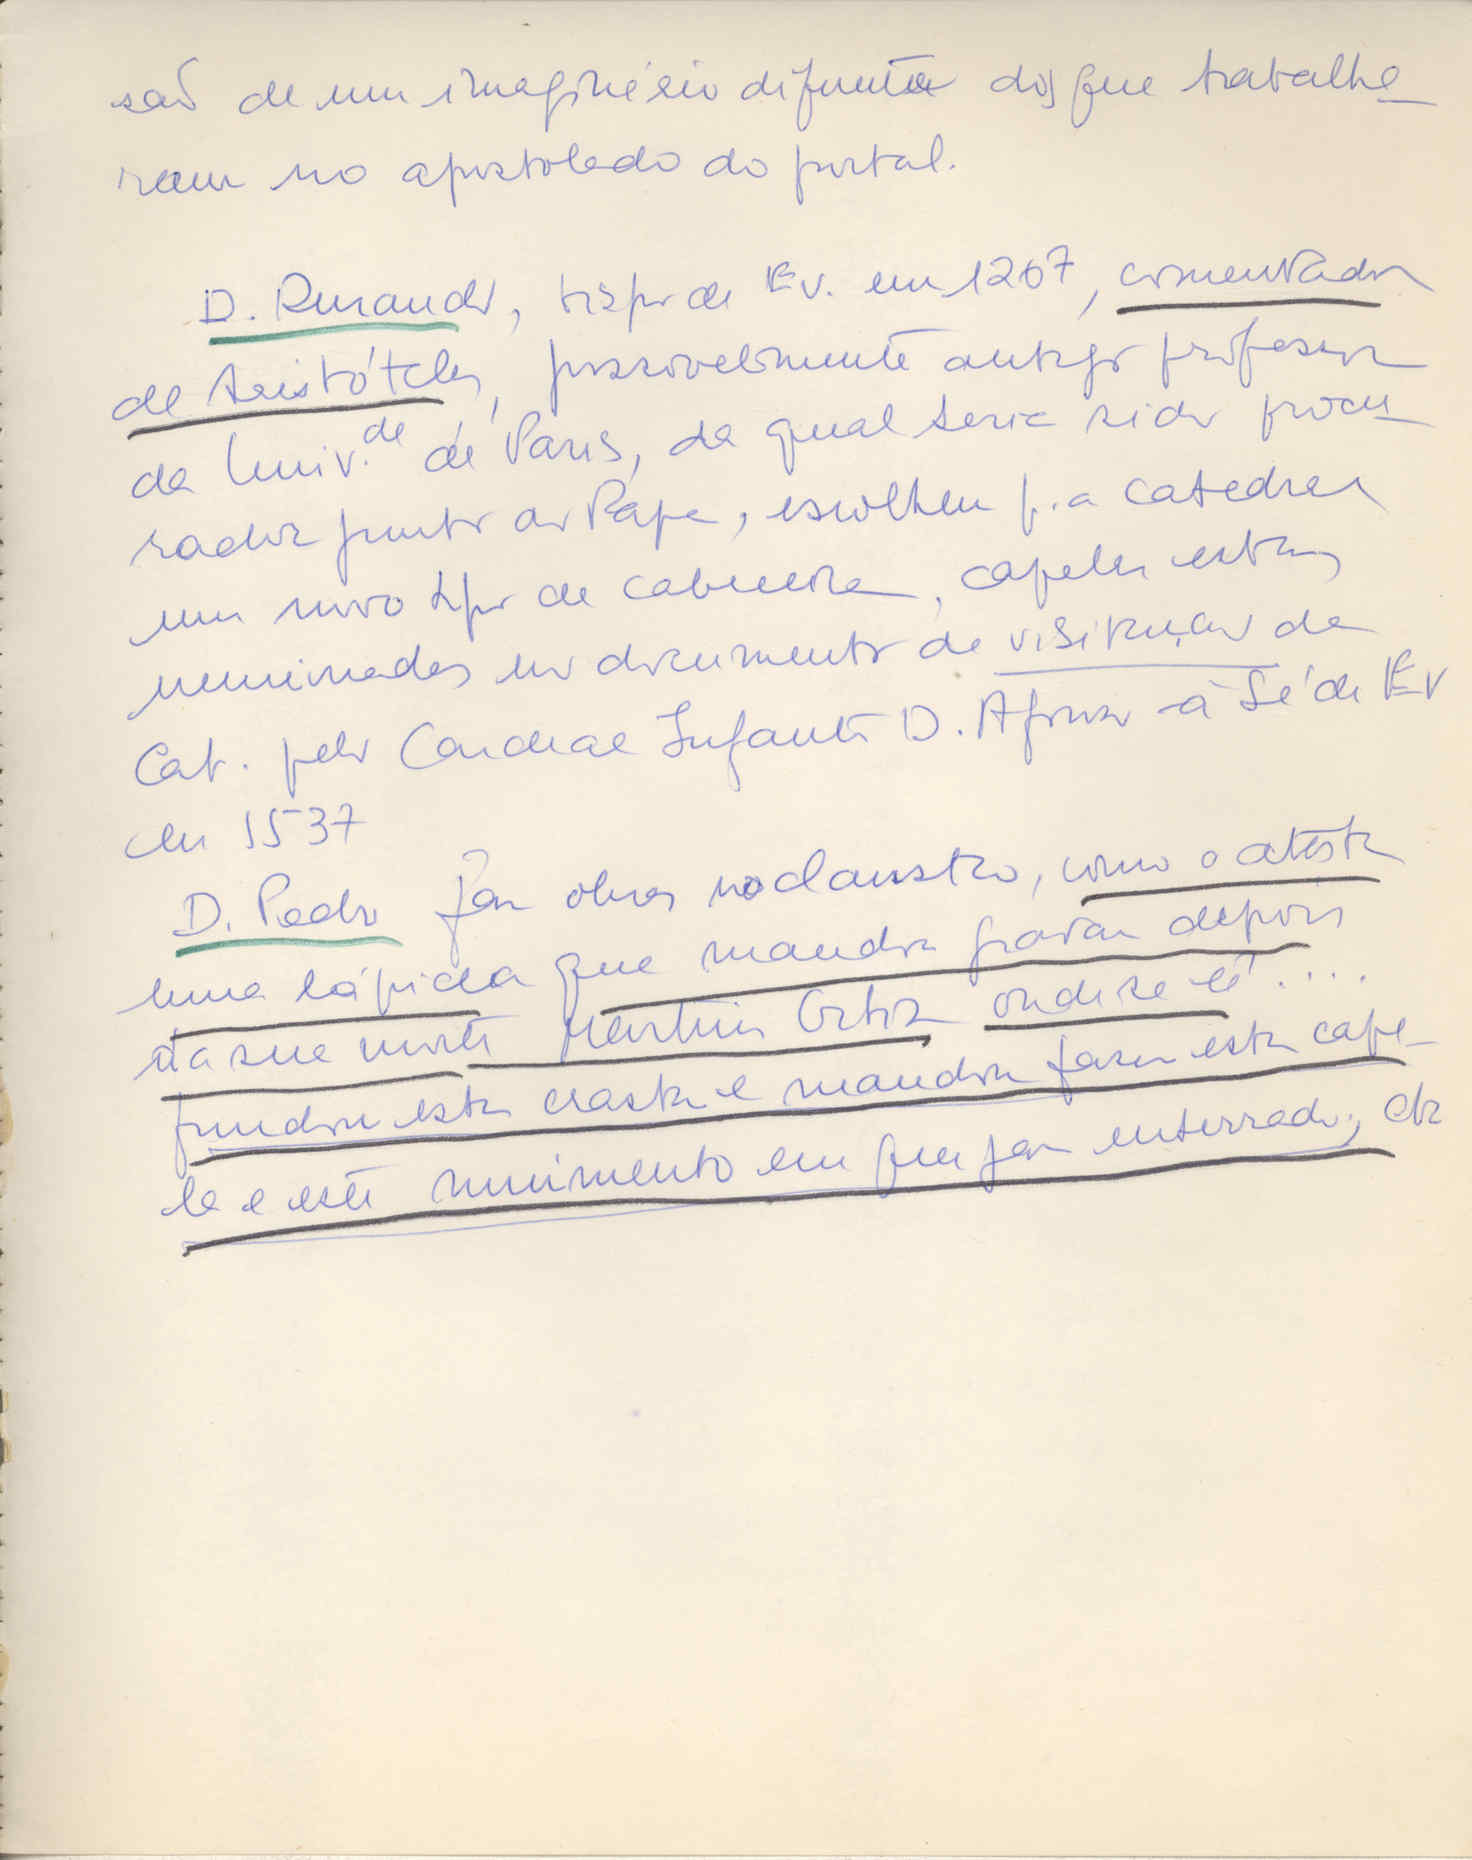 são de um imaginário difunta dos que trabalha_
ram no apostolado do portal.
D. Durando, bispo de Ev. em 1267, comentador
de Aristóteles, possivelmente antigo professor
da Univ.de de Paris, da qual teria sido procu_
rador junto ao Papa, escolheu p. a catedral
um novo tipo de cabeceira, capelas estas
mencionadas no documento de visitação da
Cat. pelo Cardeal Infante D. Afonso à Sé de Ev
em 1537
D. Pedro fez obras no claustro, como o atesta
uma lápida que mandou gravar depois
da sua morte Martim onde se lê ....
fundou esta crasta e mandou fazer esta cape_
la e este muimento em que jaz enterrado, etc